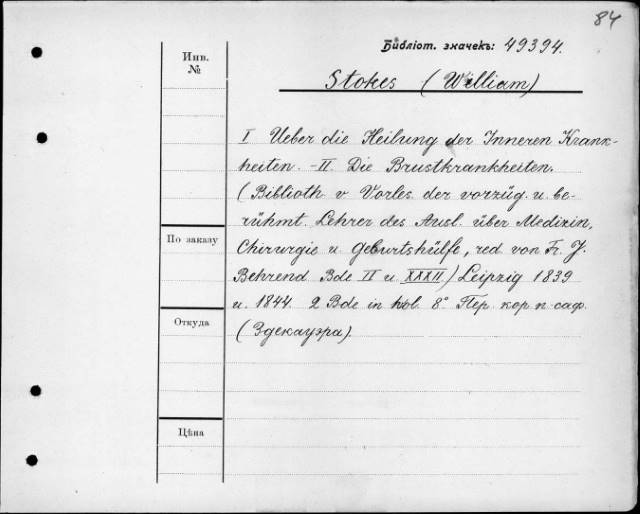 84
Библіот. значекъ: 49394.
Инв.
№
Stokes (William)
I Ueber die Heilung der Inneren Krank-
heiten. -II. Die Brustkrankheiten.
(Biblioth v Vorles. der vorzüg. u. be-
rühmt. Lehrer des Ausl. über Medizin,
Chirurgie u. Geburtshülfe, red. von Fr. J.
По заказу
Behrend Bde II u. XXXII.) Leipzig 1839
u. 1844. 2 Bde in 8° Пер. кор и саф.
Откуда
(Здекауэра).
Цѣна